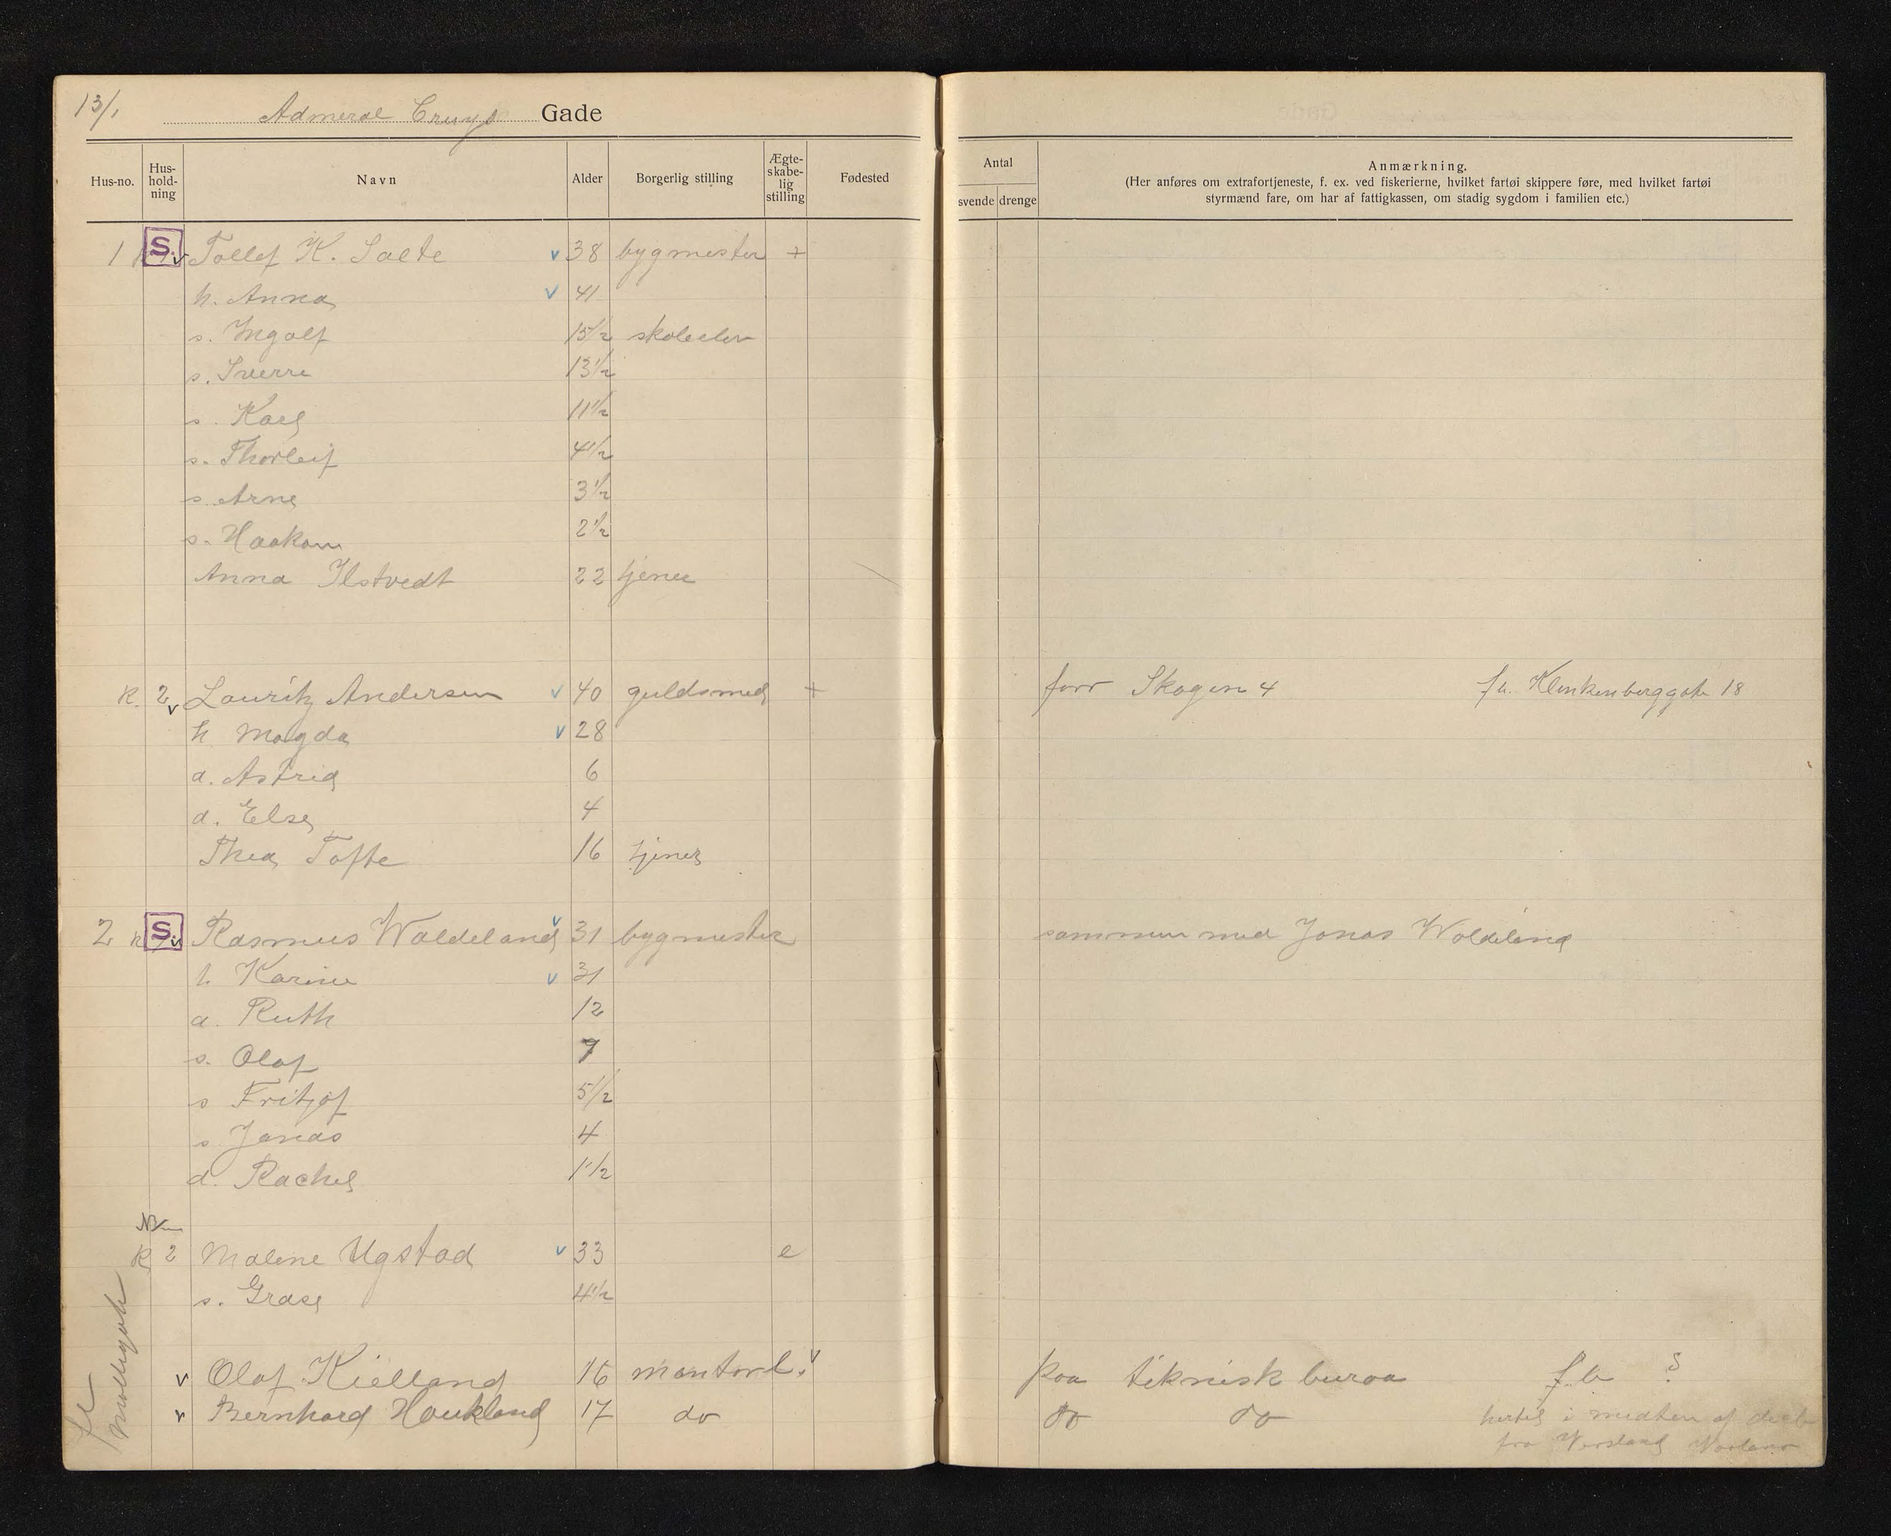 13/1
Admeral Cruys Gade
Hus-no. Hus-hold-ning Navn Alder Borgerlig stilling Ægte-skabe-lig stilling Fødested Antal svende drenge Anmærkning.
(Her anføres om extrafortjeneste, f. ex. ved fiskerierne, hvilket fartøi skippere føre, med hvilket fartøi
styrmænd fare, om har af fattigkassen, om stadig sygdom i familien etc.)
1 S. v Tollef K. Salte v 38 bygmester +
h. Anna v 41
s. Ingolf 15 1/2 skoleelev
s. Sverre 13 1/2
s. Karl 11 1/2
s. Thorleif 4 1/2
s. Arne 3 1/2
s. Haakon 2 1/2
Anna Ilstvedt 22 tjener
K. 2 v Lauritz Andersen v 40 guldsmed + forr Skagen 4 fh. Klinkenberggate 18
h Magda v 28
d. Astrid 6
d. Else 4
Thea Tofte 16 tjener
2 K S. v Rasmus Waldeland v 31 bygmester sammen med Jonas Waldeland
h. Karine v 31
d. Ruth 12
s. Olaf 7
s Fritjof 5 1/2
s Jonas 4
d. Rachel 1 1/2
K 2 Malene Ugstad v 33 e
s. 4 1/2
v Olaf Kielland 16 v paa teknisk buraa
v Bernhard Haukland 17 do do do
hertil i midten af
fra